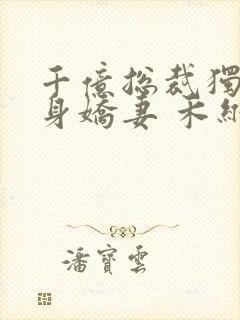 千億總裁獨
身嬌妻 禾細
潘寶雲